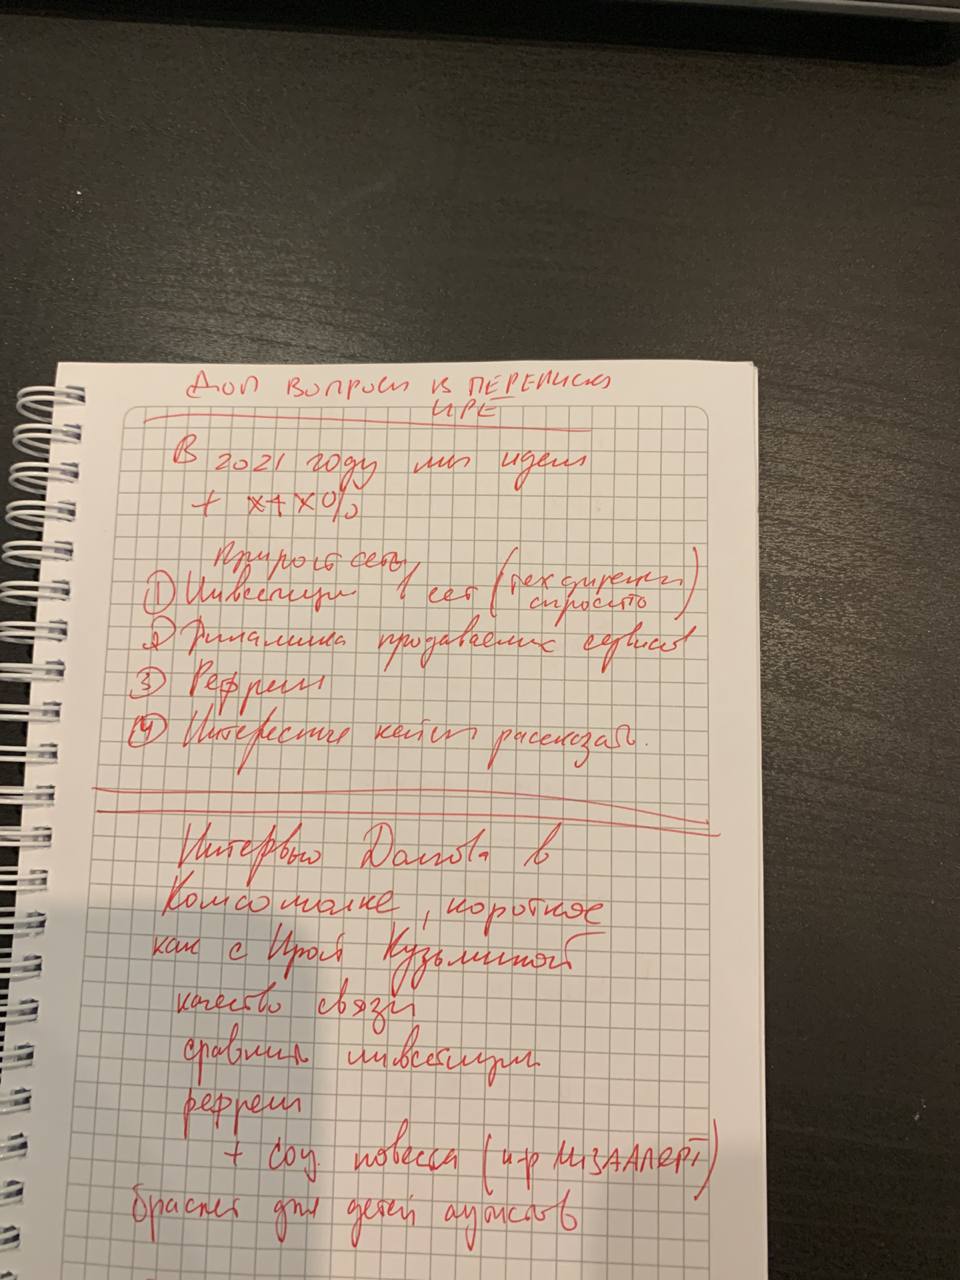 Доп вопросы к ПЕРЕПИСКЕ
ИРЕ
В 2021 году мы идем
+ х+х%
Прирост сеты,
① Инвестиции в сет (тех дирекции
спросить)
2 Динамика продаваемых сервисов
③ Рефрейм
④ Интересные кейсы рассказать.
Интервью Долгова в
Комсомолке, короткое
как с Ирой Кузьминой
качество связи
сравним инвестиции
рефрейм
+ соц. повестка (н-р
браслет для детей аутистов